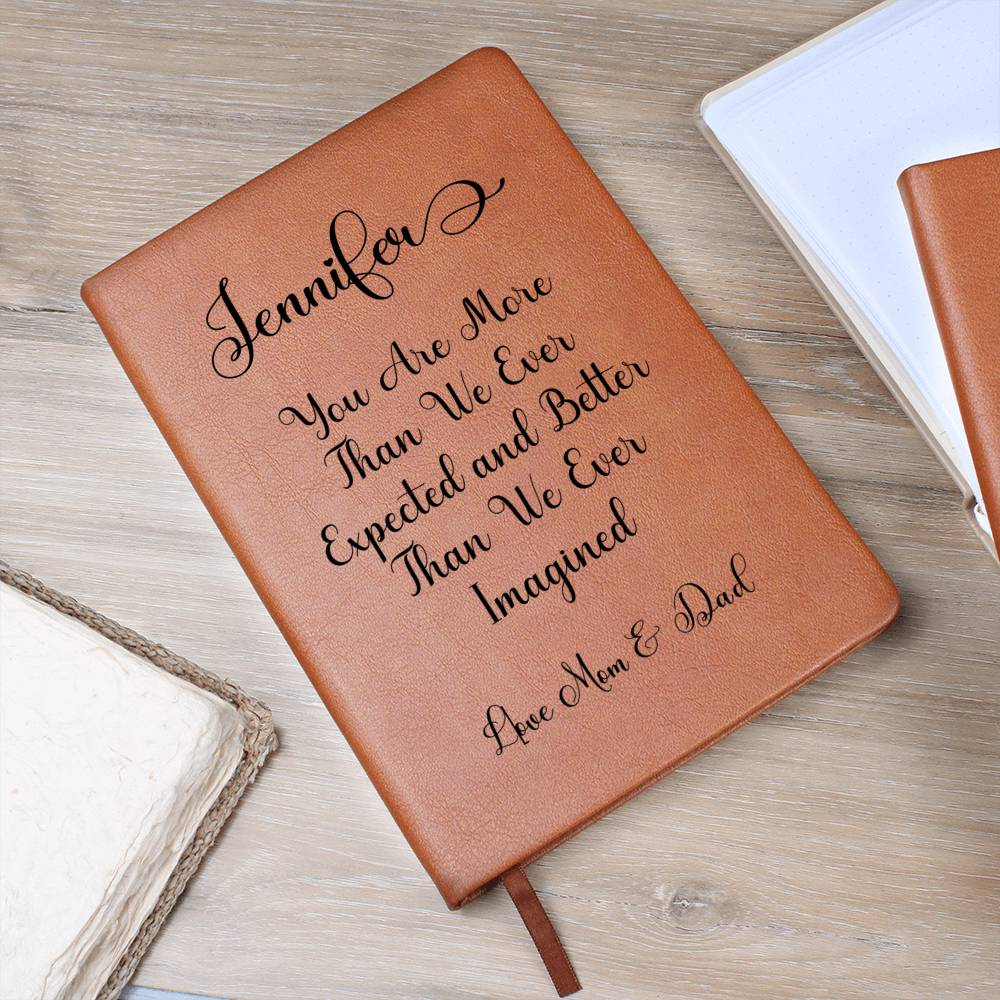 Jennifer
You Are More
Than We Ever
Expected and Better
Than We Ever
Imagined
Love Mom & Dad